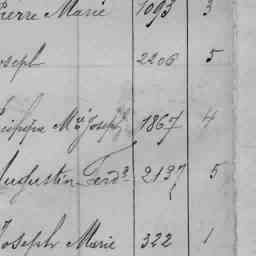 Pierre Marie 1093 3
Joseph 2206 5
Mie Joseph 1867 4
Augustin Ferd. 2137 5
Joseph Marie 322 1